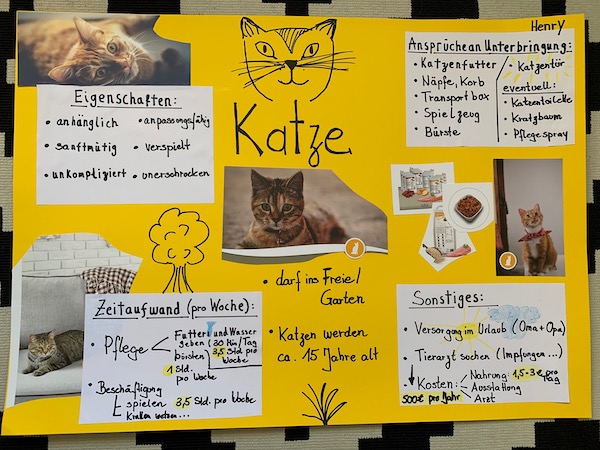 Henry
Katze
Eigenschaften:
• anhänglich
• anpassungsfähig
• sanftmütig
• verspielt
• unkompliziert
• unerschrocken
Ansprüche an Unterbringung:
• Katzenfutter
• Näpfe, Korb
• Transportbox
• Spielzeug
• Bürste
• Katzentür
eventuell:
• Katzentoilette
• Kratzbaum
• Pflegespray
• darf ins Freie/
Garten
• Katzen werden
ca. 15 Jahre alt
Zeitaufwand (pro Woche):
• Pflege
Futter und Wasser
geben (30 Min/Tag
3,5 Std pro
Woche
bürsten
1 Std.
pro Woche
• Beschäftigung
spielen 3,5 Std. pro Woche
Krallen wetzen...
Sonstiges:
• Versorgung im Urlaub (Oma + Opa)
• Tierarzt suchen (Impfungen...)
• Kosten:
Nahrung: 1,5-3€ pro
Tag
Ausstattung
Arzt
500€ pro Jahr